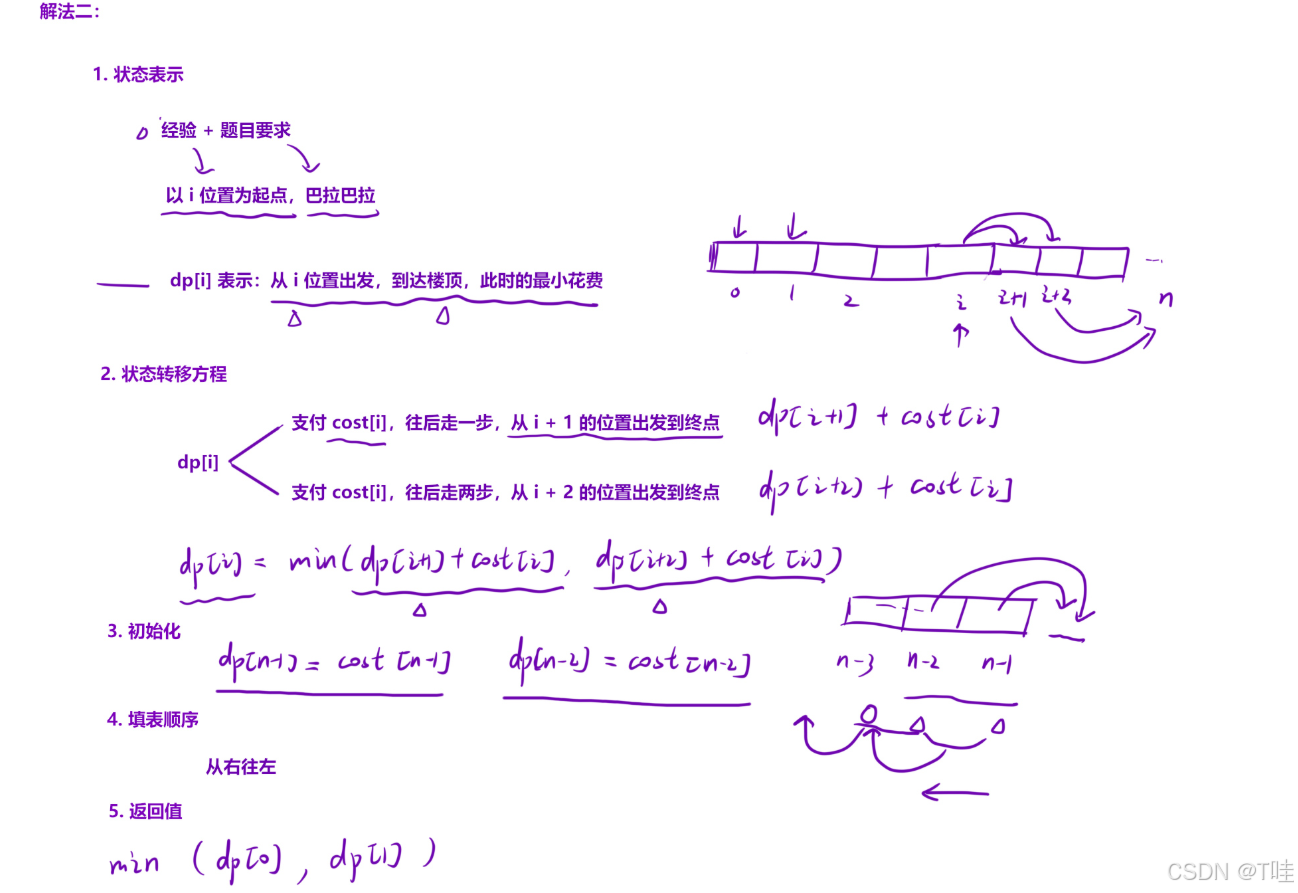 解法二：
1. 状态表示
经验 + 题目要求
以 i 位置为起点，巴拉巴拉
dp[i] 表示：从 i 位置出发，到达楼顶，此时的最小花费
0 1 2 i i+1 i+2 n
2. 状态转移方程
支付 cost[i]，往后走一步，从 i + 1 的位置出发到终点 dp[i+1] + cost[i]
dp[i]
支付 cost[i]，往后走两步，从 i + 2 的位置出发到终点 dp[i+2) + cost[i]
dp[i] = min(dp[i+1) + cost[i], dp[i+2) + cost[i])
3. 初始化
dp[n-1) = cost[n-1] dp[n-2) = cost[n-2]
n-3 n-2 n-1
4. 填表顺序
从右往左
5. 返回值
min (dp[0], dp[1])
CSDN @T哇